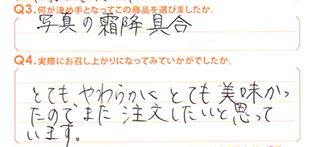 Q3.何が決め手となってこの商品を選びましたか。
写真の霜降具合
Q4.実際にお召し上がりになってみていかがでしたか。
とても やわらかく とても 美味かっ
たのでまた 注文したいと思って
います。